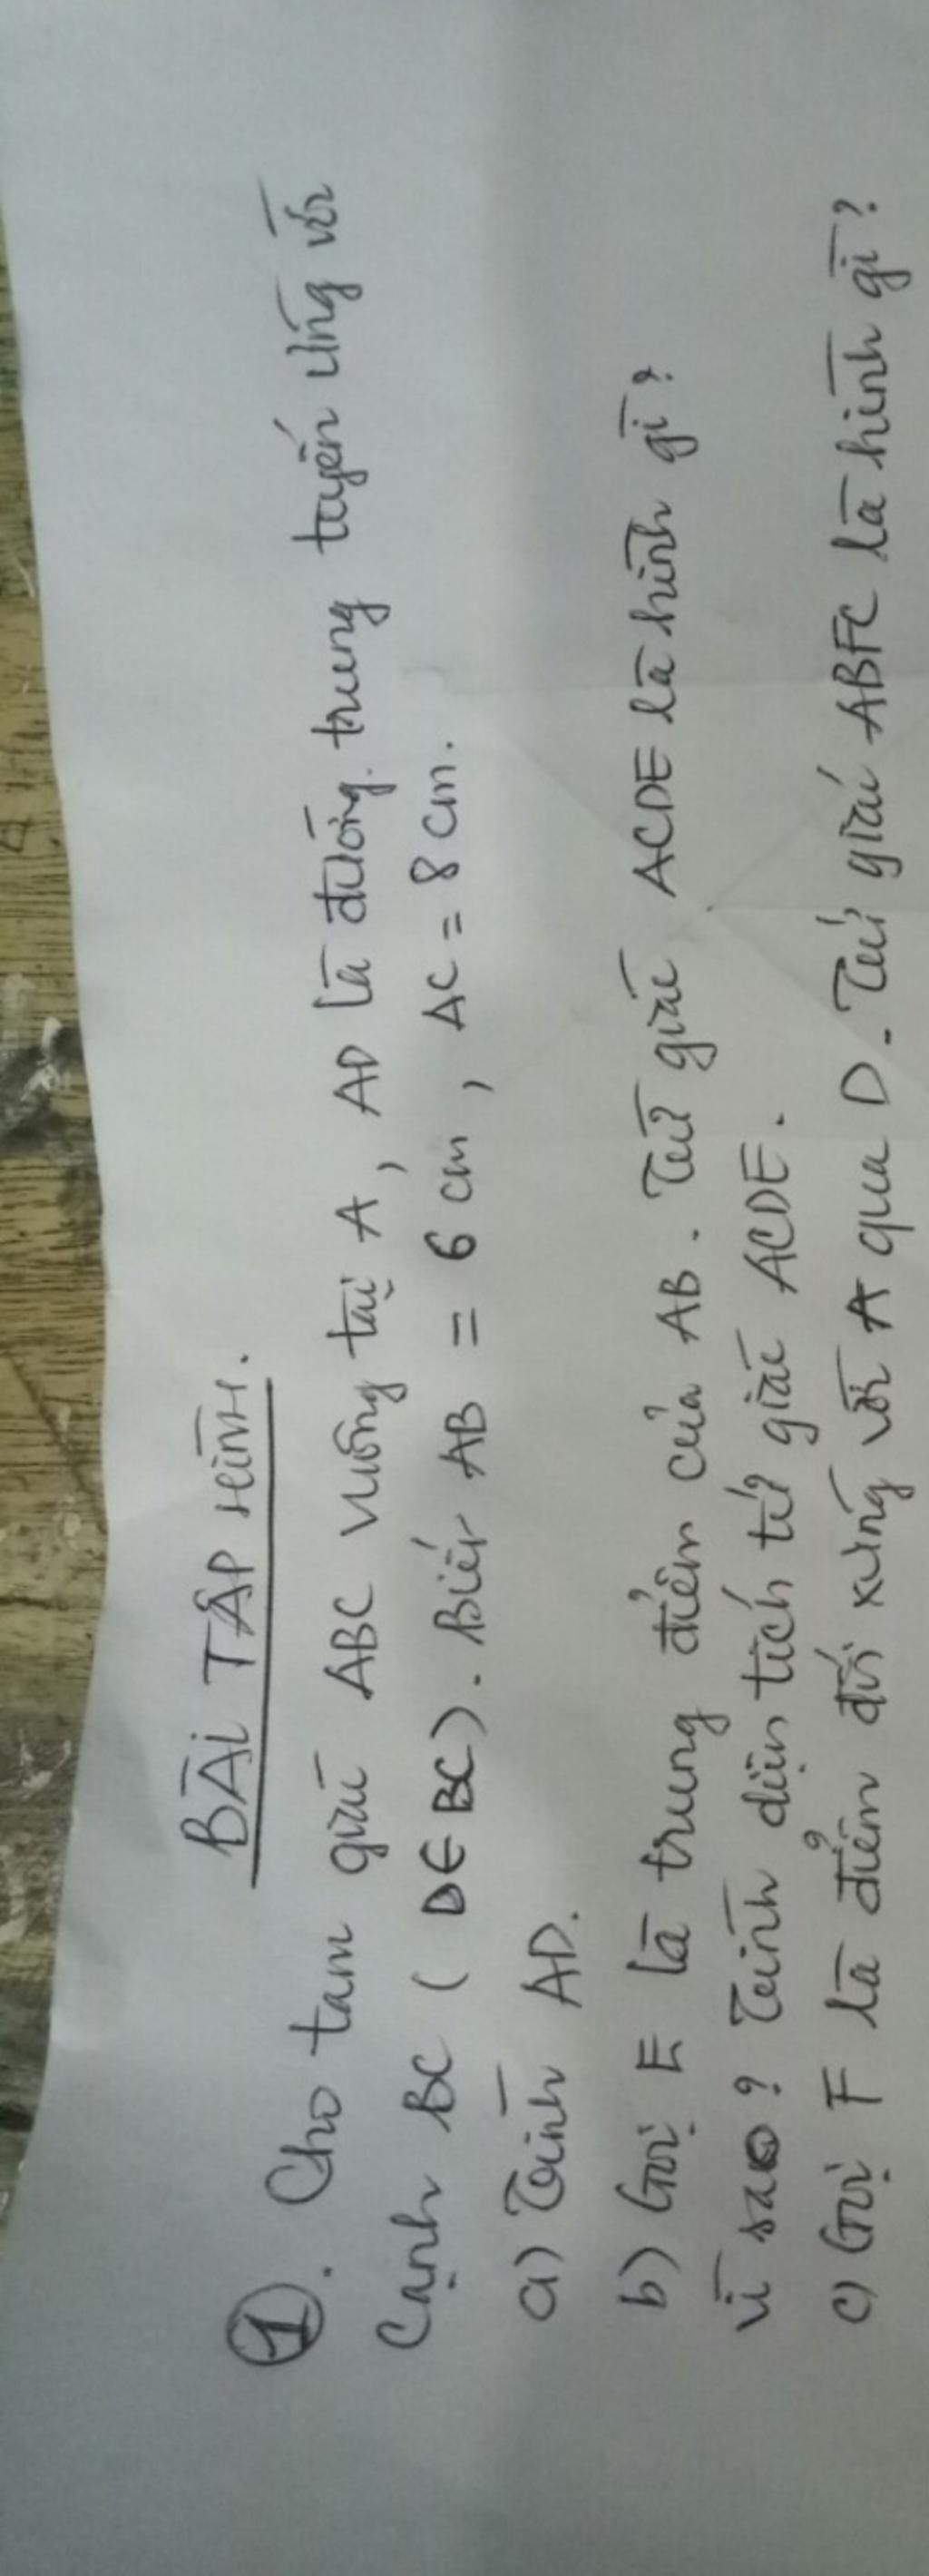 BÀI TẬP HÌNH.
①. Cho tam giác ABC vuông tại A, AD là đường trung tuyến ứng với
cạnh BC (D∈BC). Biết AB = 6 cm, AC = 8 cm.
a) Tính AD.
b) Gọi E là trung điểm của AB. Tứ giác ACDE là hình gì?
Vì sao? Tính diện tích tứ giác ACDE.
c) Gọi F là điểm đối xứng với A qua D. Tứ giác ABFC là hình gì?